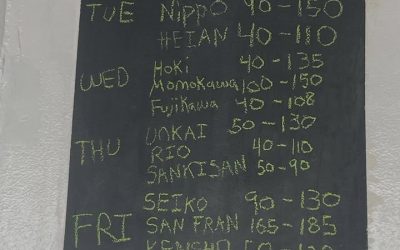 TUE NIPPO 90-150
HEIAN 40-110
WED HOKI 40-135
MOMOKAWA 100-150
FUJIKAWA 40-108
THU UNKAI 50-130
RIO 40-110
SANKISAN 50-90
FRI SEIKO 90-130
SAN FRAN 165-185